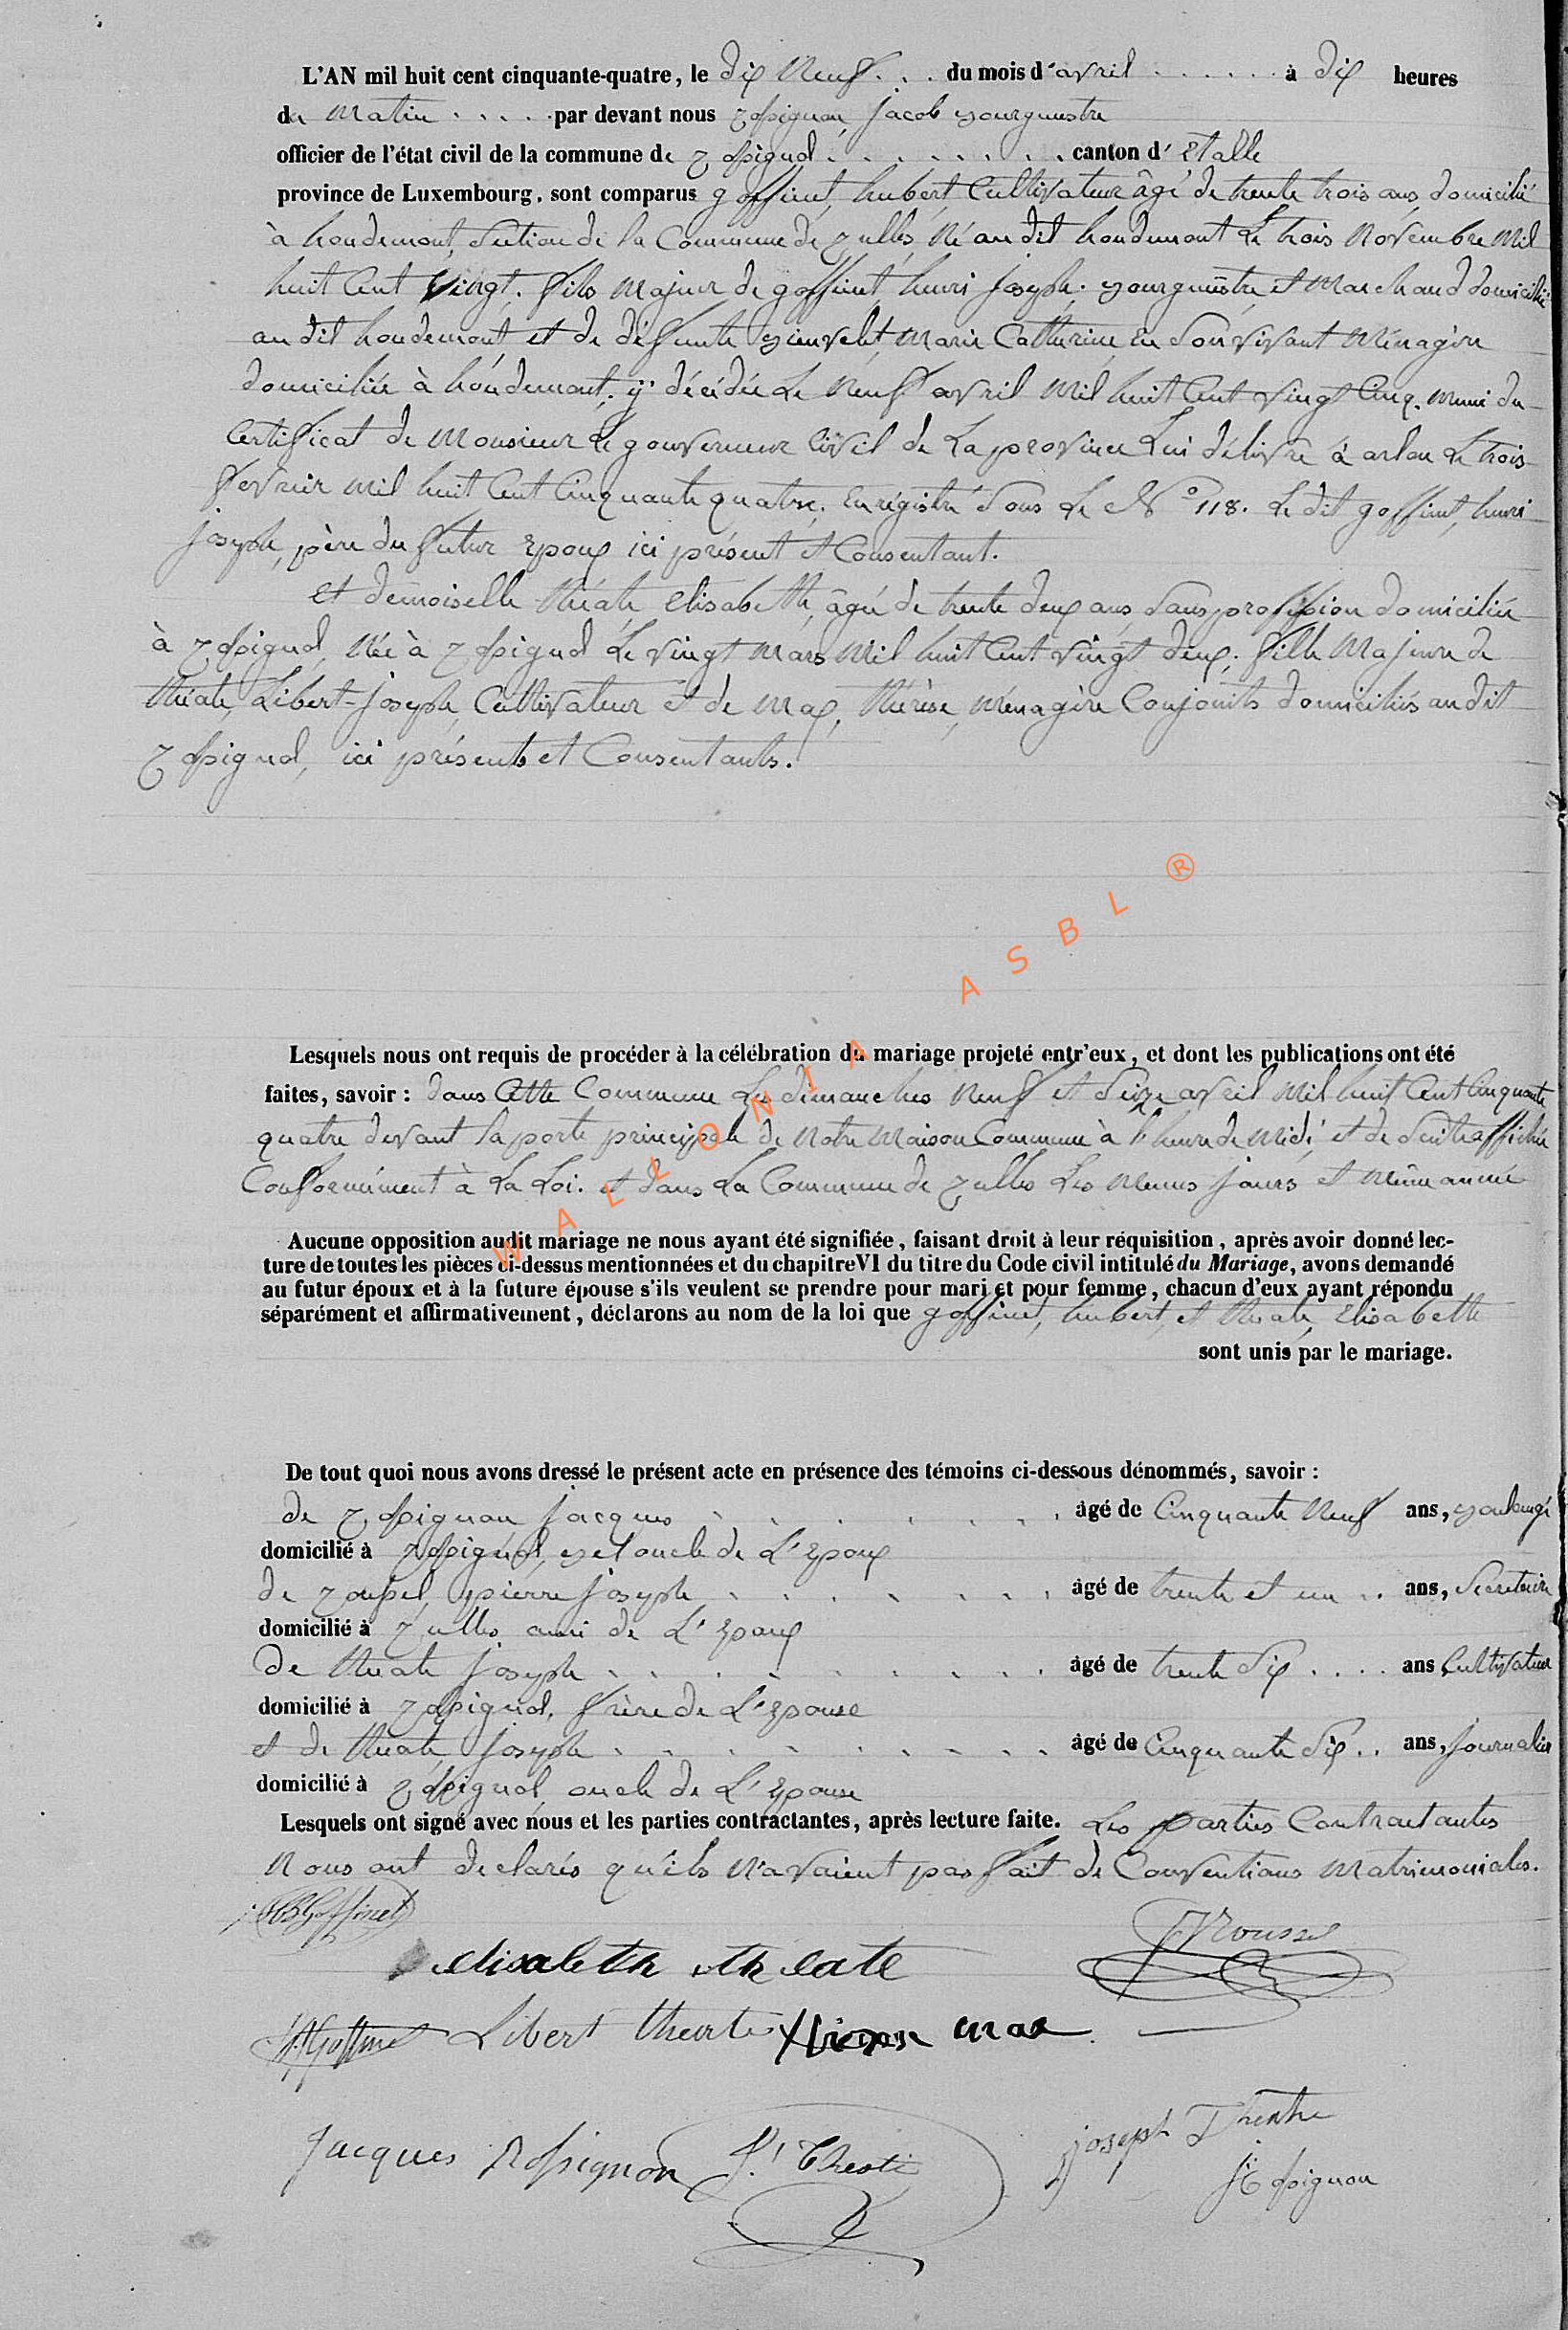 L'AN mil huit cent cinquante-quatre, le dix Neuf . . . du mois d'avril . . . . . . à dix heures
du Matin . . . . . par devant nous rossignon, jacob Bourgmestre
officier de l'état civil de la commune de rossignol . . . . . . . . canton d'Etalle
province de Luxembourg, sont comparus goffinet, hubert, Cultivateur âgé de trente trois ans, domicilié
à houdemont, Section de la Commune de rulles, Né au dit houdemont Le trois Novembre Mil
huit Cent Vingt. fils Majeur de goffinet, henri joseph, Bourgmestre et Marchand domicilié
au dit houdemont, et de défunte Marie Catherine, En Son vivant Ménagère
domiciliée à houdemont, y décédée Le Neuf avril Mil huit Cent vingt Cinq. Muni du
Certificat de Monsieur Le gouverneur Civil de La province Lui délivré à arlon Le trois
fevrier Mil huit Cent Cinquante quatre, Enrégistré Sous Le No 118. Le dit goffinet, henri
joseph, père du futur Epoux ici présent et Consentant.
Et demoiselle théate, Elisabeth, âgée de trente deux ans, Sans profession domiciliée
à rossignol, Née à rossignol Le vingt Mars Mil huit Cent vingt deux, fille Majeure de
théate, Libert-joseph, Cultivateur et de Max, thérèse, Ménagère Conjoints domiciliés au dit
rossignol, ici présents et Consentants.
Lesquels nous ont requis de procéder à la célébration du mariage projeté entr'eux, et dont les publications ont été
faites, savoir : dans Cette Commune Les dimanches Neuf et Seize avril Mil huit Cent Cinquante
quatre devant la porte principale de Notre Maison Commune à l'heure de Midi, et de Suite affichée
Conformément à La Loi. et dans La Commune de rulles Les Mêmes jours et Même année
Aucune opposition audit mariage ne nous ayant été signifiée, faisant droit à leur réquisition, après avoir donné lec-
ture de toutes les pièces ci-dessus mentionnées et du chapitre VI du titre du Code civil intitulé du Mariage, avons demandé
au futur époux et à la future épouse s'ils veulent se prendre pour mari et pour femme, chacun d'eux ayant répondu
séparément et affirmativement, déclarons au nom de la loi que goffinet, hubert, et théate, Elisabeth
sont unis par le mariage.
De tout quoi nous avons dressé le présent acte en présence des témoins ci-dessous dénommés, savoir :
de rossignon jacques . . . . . . . âgé de Cinquante Neuf ans,
domicilié à rossignol, Bel oncle de L'Epoux
de roussel, pierre joseph . . . . . . . âgé de trente et un . . ans, Secretaire
domicilié à rulles ami de L'Epoux
de théate joseph . . . . . . . . . âgé de trente Six . . . . ans Cultivateur
domicilié à rossignol, frère de L'Epouse
et de théate, joseph . . . . . . . . . âgé de Cinquante Six . . ans, journalier
domicilié à rossignol, oncle de L'Epouse
Lesquels ont signé avec nous et les parties contractantes, après lecture faite. Les parties Contractantes
Nous ont declarés qu'ils N'avaient pas fait de Conventions Matrimoniales.
Goffinet
elisabeth theate
Rousse
Goffinet Libert theate max
Jacques Rossignon J. Theate
joseph Theate
Rossignon
WALLONIA ASBL ®